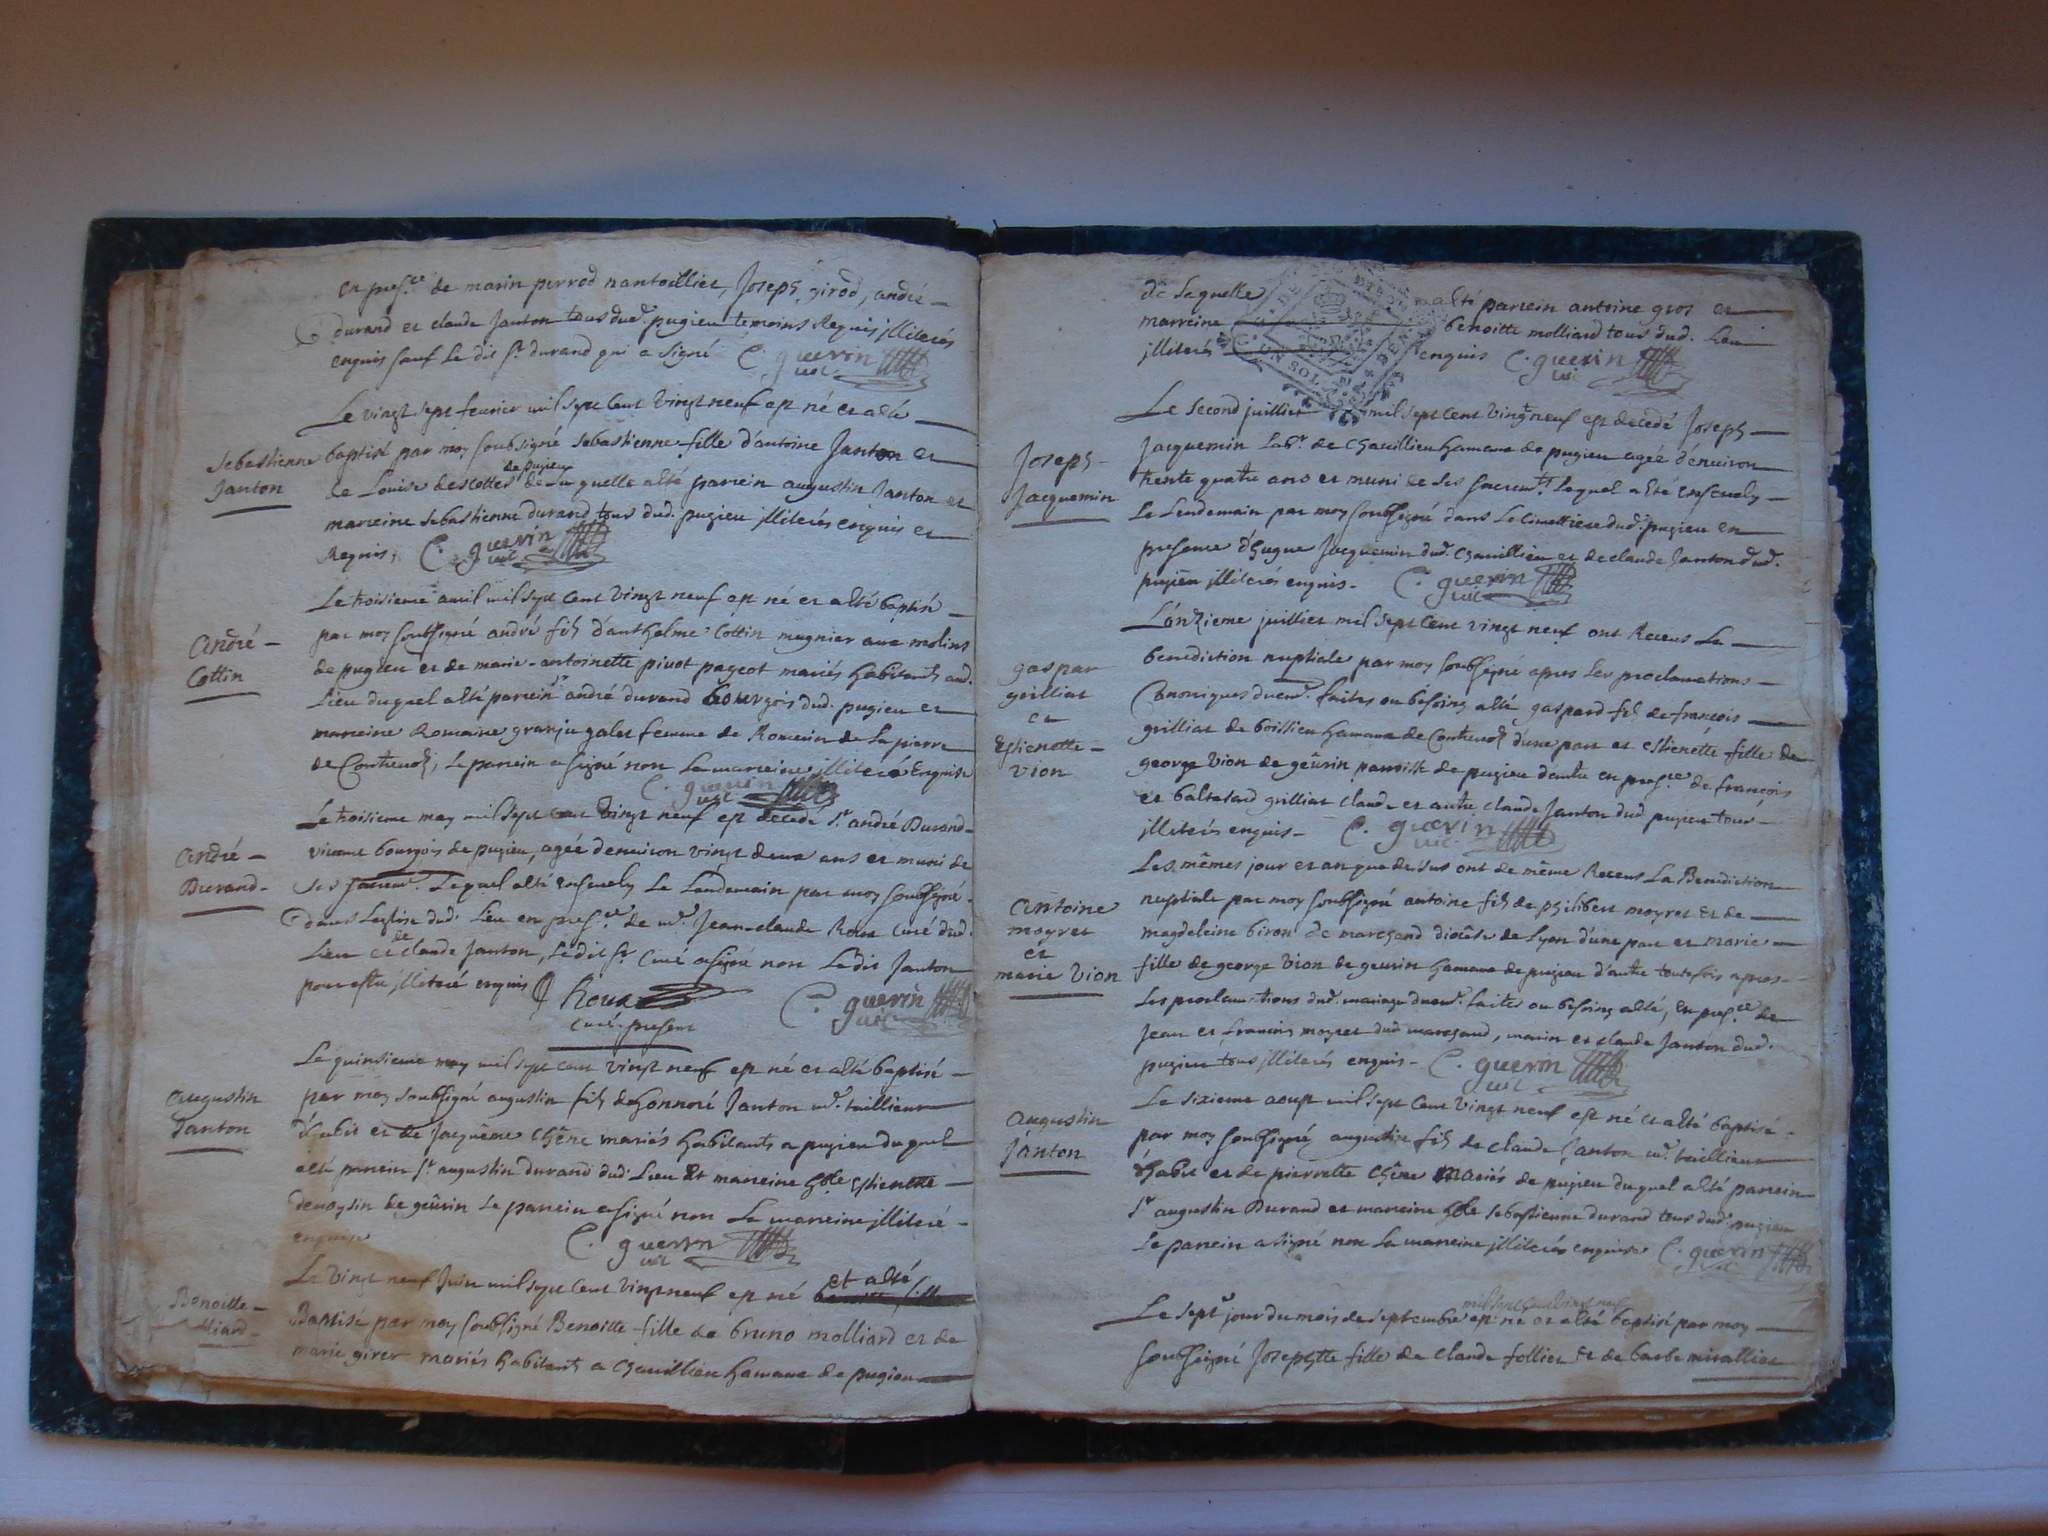 en pres.ce de marin perrod nantoillier, Joseph girod, andré
durand et claude Janton tous dud. pugieu temoins Requis jlliterés
enquis sauf le dit Sr durand qui a signé C. guerin
vic.
Le vingt sept feurier mil sept cent vingt neuf est né et a été
Sebastienne
Janton
baptisé par moy soubsigné sebastienne fille d'antoine Janton et
de Louise descottes de pugieu de la quelle a été parrein augustin Janton et
marreine sebastienne durand tous dud. pugieu jlliterés enquis et
Requis, C. guerin
vic.
Le troisieme auril mil sept cent vingt neuf est né et a été baptisé
andré
Cottin
par moy soubsigné andré fils d'anthelme Cottin mugnier aux molins
de pugieu et de marie-antoinette pivot pageot mariés habitants aud.
Lieu duquel a été parrein sr andré durand bourgois dud. pugieu et
marreine Romaine granju galet femme de Romerin de la pierre
de Contreuoz, Le parrein a signé non La marreine jlliterée Enquise
C. guerin
vic.
Le troisieme may mil sept cent vingt neuf est decedé Sr andré Durand
andré
Durand
viuant bourgois de pugieu, agée d'enuiron vingt deux ans et muni de
ses sacremts. Lequel a été enseuely Le Lendemain par moy soubsigné
dans L'eglise dud. Lieu en pres.ce de mr. Jean-claude Roux curé dud.
Lieu et de claude Janton, Ledit Sr. Curé a signé non Ledit Janton
pour estre jlliteré enquis Roux C. guerin
curé present vic.
Le quinsieme may mil sept cent vingt neuf est né et a été baptisé
augustin
Janton
par moy soubsigné augustin fils de honnoré Janton mr. taillieur
d'habit et de Jacquême Chêne mariés habitants a pugieu duquel
a été parrein Sr. augustin durand dud. Lieu Et marreine hble Estienette
demoysin de geûrin Le parrein a signé non La marreine jlliteré
enquise C. guerin
vic.
Le vingt neuf Juin mil sept cent vingt neuf est né et a été
Benoitte
lliard
Baptisé par moy soubsigné Benoitte fille de bruno molliard et de
marie girer mariés habitants a Chauillieu hameau de pugieu
de Laquelle a été parrein antoine gros et
marreine benoitte molliard tous dud. Lieu
jlliterés enquis C. guerin
vic.
UN SOL
Le second juillier mil sept cent vingt neuf est decedé Joseph
Joseph
Jacquemin
Jacquemin Labr. de Chauillieu hameau de pugieu agée d'enuiron
trente quatre ans et muni de ses sacremts. Lequel a été enseuely
Le Lendemain par moy soubsigné dans Le Cimettiere dud. pugieu en
presence d'hugue Jacquemin dud. Chauillieu et de claude Janton dud.
pugieu jlliterés enquis. C. guerin
vic.
L'onzieme juillier mil sept cent vingt neuf ont Receus La
gaspar
grilliat
et
Estienette
vion
benediction nuptiale par moy soubsigné apres Les proclamations
Canoniques duemt. faites ou besoins a été gaspard fils de francois
grilliat de boissieu hameau de Contreuoz d'une part et Estienette fille de
george vion de geûrin parroisse de pugieu d'autre en pres.ce de francois
et baltasard grilliat claude et autre claude Janton dud. pugieu tous
jlliterés enquis. C. guerin
vic.
Les mêmes jour et an que dessus ont de même Receus La Benediction
antoine
moyret
et
marie vion
nuptiale par moy soubsigné antoine fils de philibert moyret et de
magdeleine biron de marchand diocèse de Lyon d'une part et marie
fille de george vion de geurin hameau de pugieu d'autre toutefois apres
Les proclamations dud. mariage duemt. faites ou besoins a été, En pres.ce de
Jean et francois moyret dud marchand, marin et claude Janton dud.
pugieu tous jlliterés enquis. C. guerin
vic.
Le sixieme aoust mil sept cent vingt neuf est né et a été baptisé
augustin
Janton
par moy soubsigné augustin fils de claude Janton mr. taillieur
d'habit et de pierrette Chêne Mariés de pugieu duquel a été parrein
Sr augustin Durand et marreine hble sebastienne durand tous dud. pugieu
Le parrein a signé non La marreine jlliterés enquise C. guerin
vic.
Le sept.e jour du mois de septembre mil sept cent vingt neuf est né et a été baptisé par moy
soubsigné Josephte fille de claude follier et de barbe mirallier